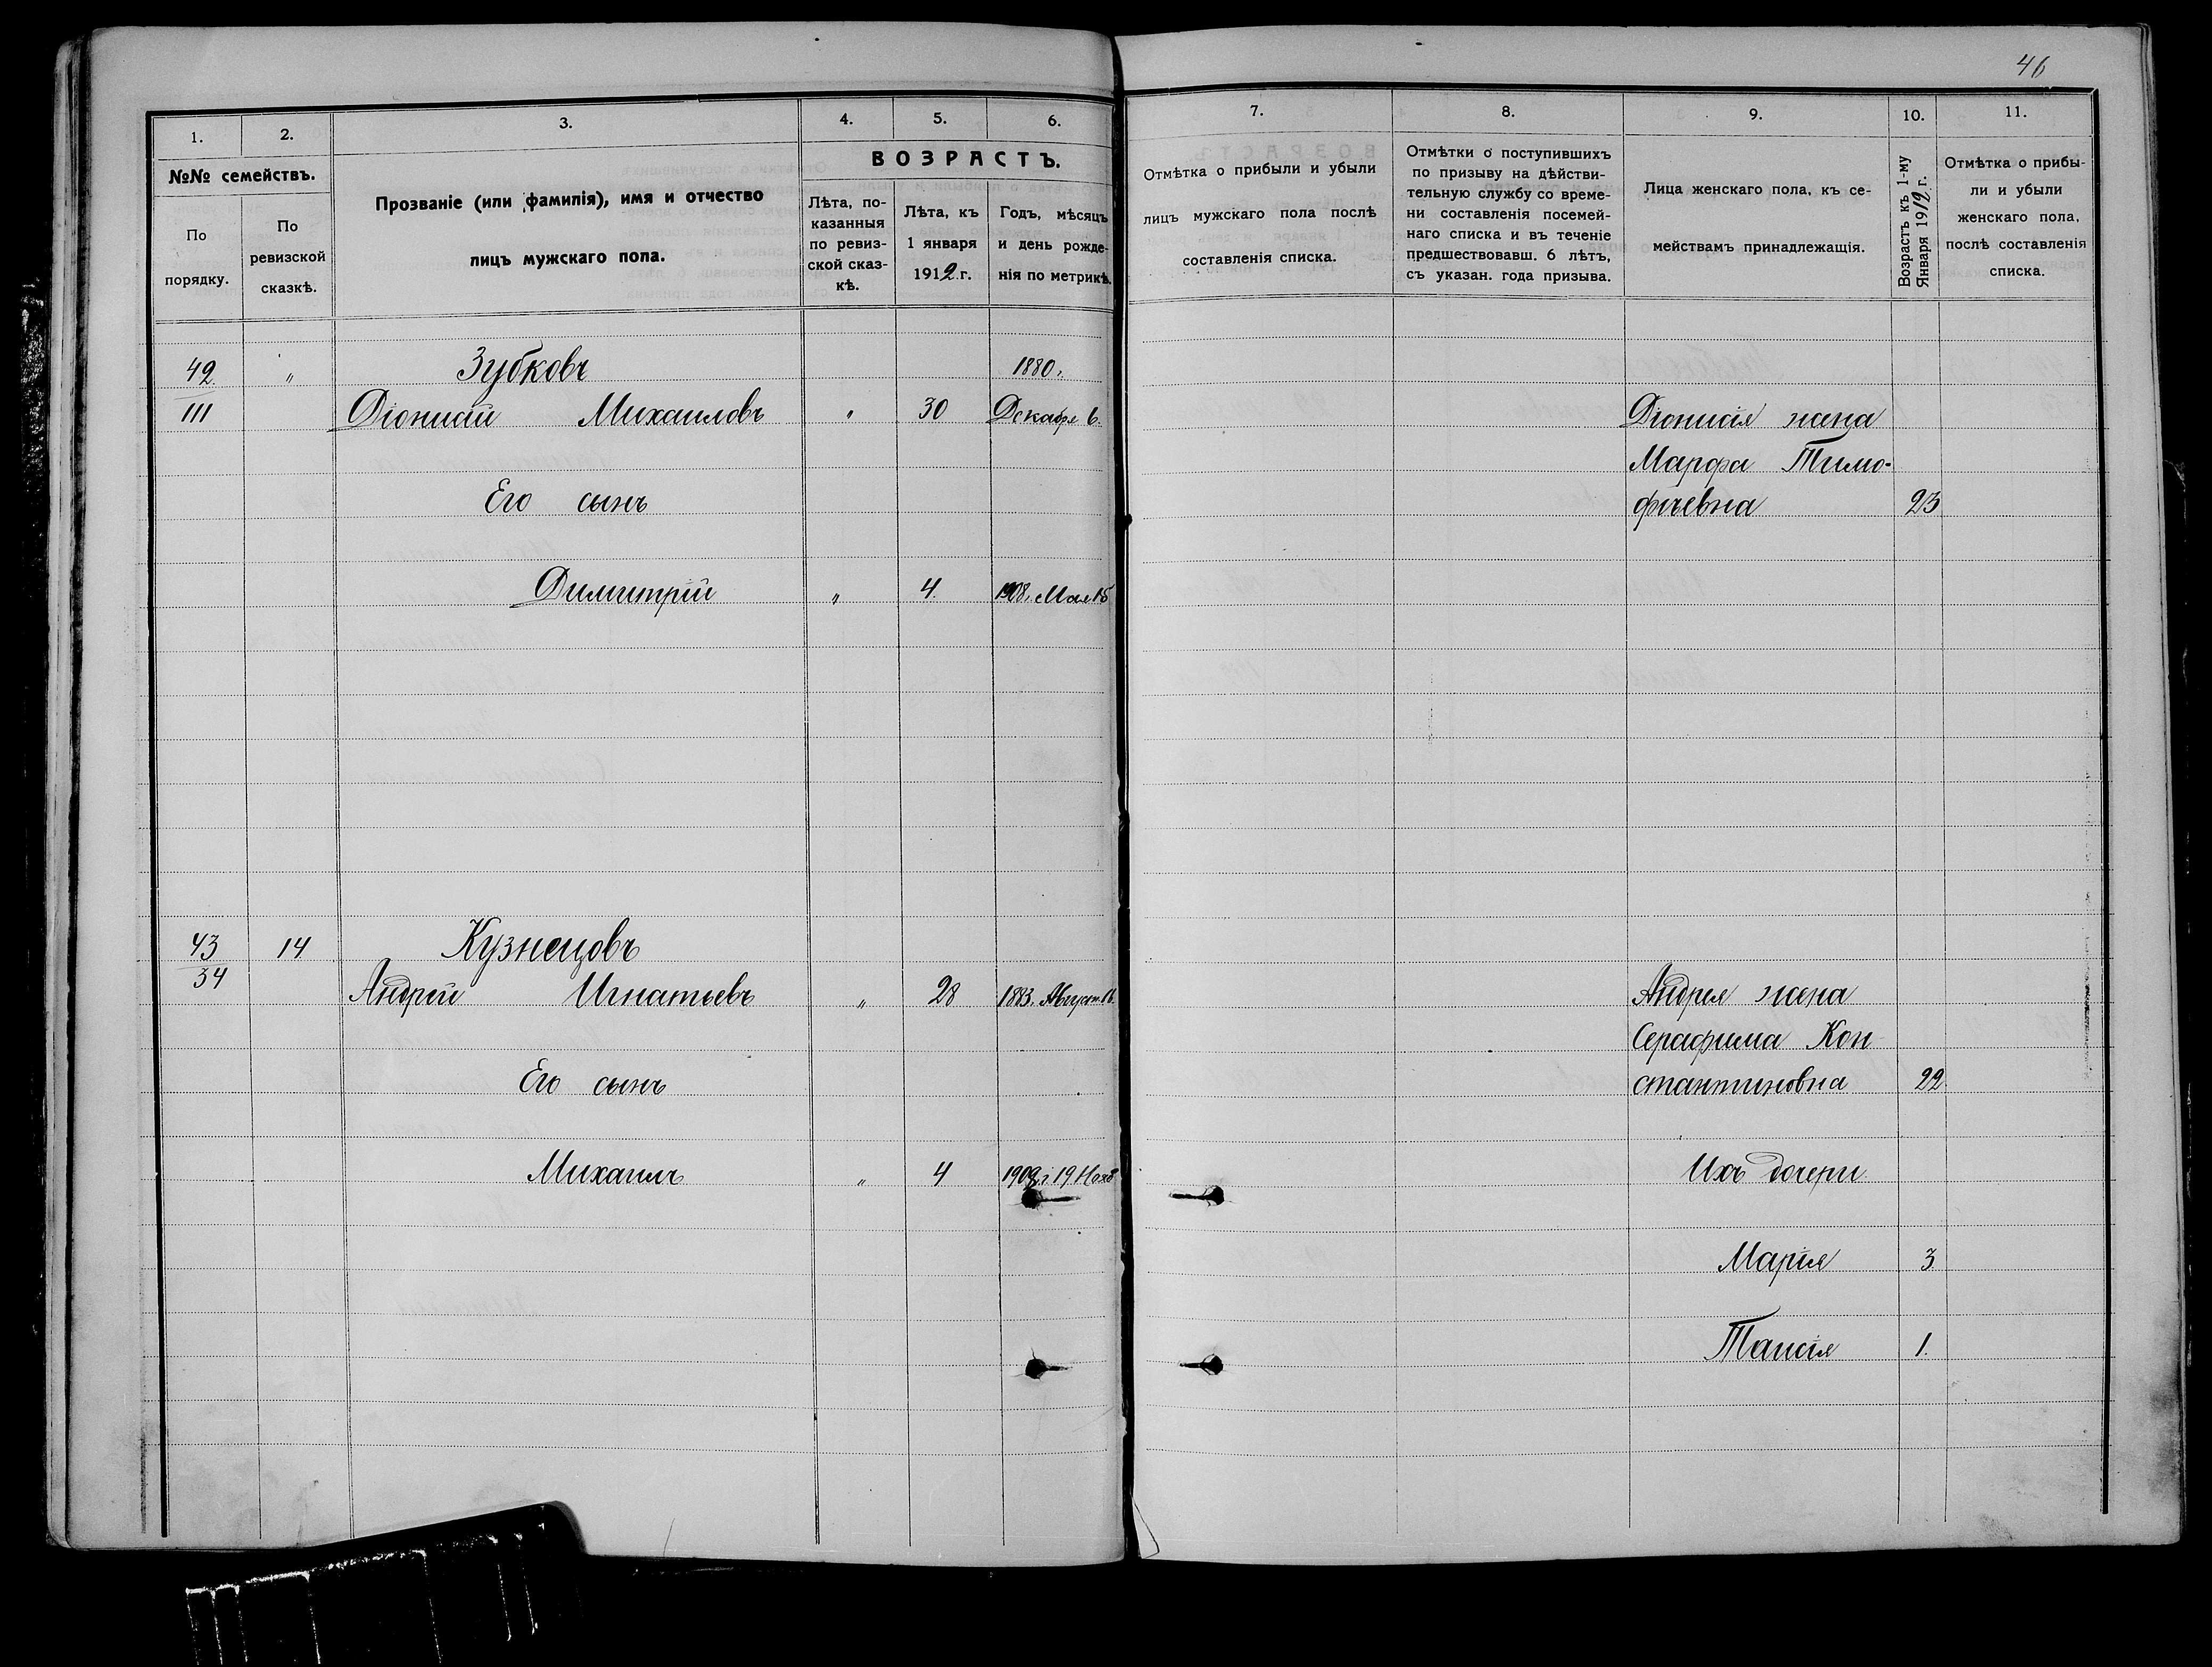 46
1.
2.
3.
4.
5.
6.
7.
8.
9.
10.
11.
№№ семействъ.
По
порядку.
По
ревизской
сказкѣ.
Прозваніе (или фамилія), имя и отчество
лицъ мужскаго пола.
ВОЗРАСТЪ.
Лѣта, по-
казанныя
по ревиз-
ской сказ-
кѣ.
Лѣта, къ
1 января
1912 г.
Годъ, мѣсяцъ
и день рожде-
нія по метрикѣ.
Отмѣтка о прибыли и убыли
лицъ мужскаго пола послѣ
составленія списка.
Отмѣтки о поступившихъ
по призыву на дѣйстви-
тельную службу со време-
ни составленія посемей-
наго списка и въ теченіе
предшествовавш. 6 лѣтъ,
съ указан. года призыва.
Лица женскаго пола, къ се-
мействамъ принадлежащія.
Возрастъ къ 1-му
Января 1912 г.
Отмѣтка о прибы-
ли и убыли
женскаго пола,
послѣ составленія
списка.
42 " Зубковъ 1880 г.
111 Діонисій Михаиловъ " 30 Декабря 6. Діонисія жена
Марфа Тимо-
Его сынъ фѣевна 23
Димитрій " 4. 1908 г. Мая 15
43 14 Кузнецовъ
34 Андрей Игнатьевъ " 28 1883 г. Август. 16. Андрея жена
Серафима Кон
Его сынъ стантиновна 22
Михаилъ " 4 19 Нояб Ихъ дочери
Марія 3
Таисія 1.